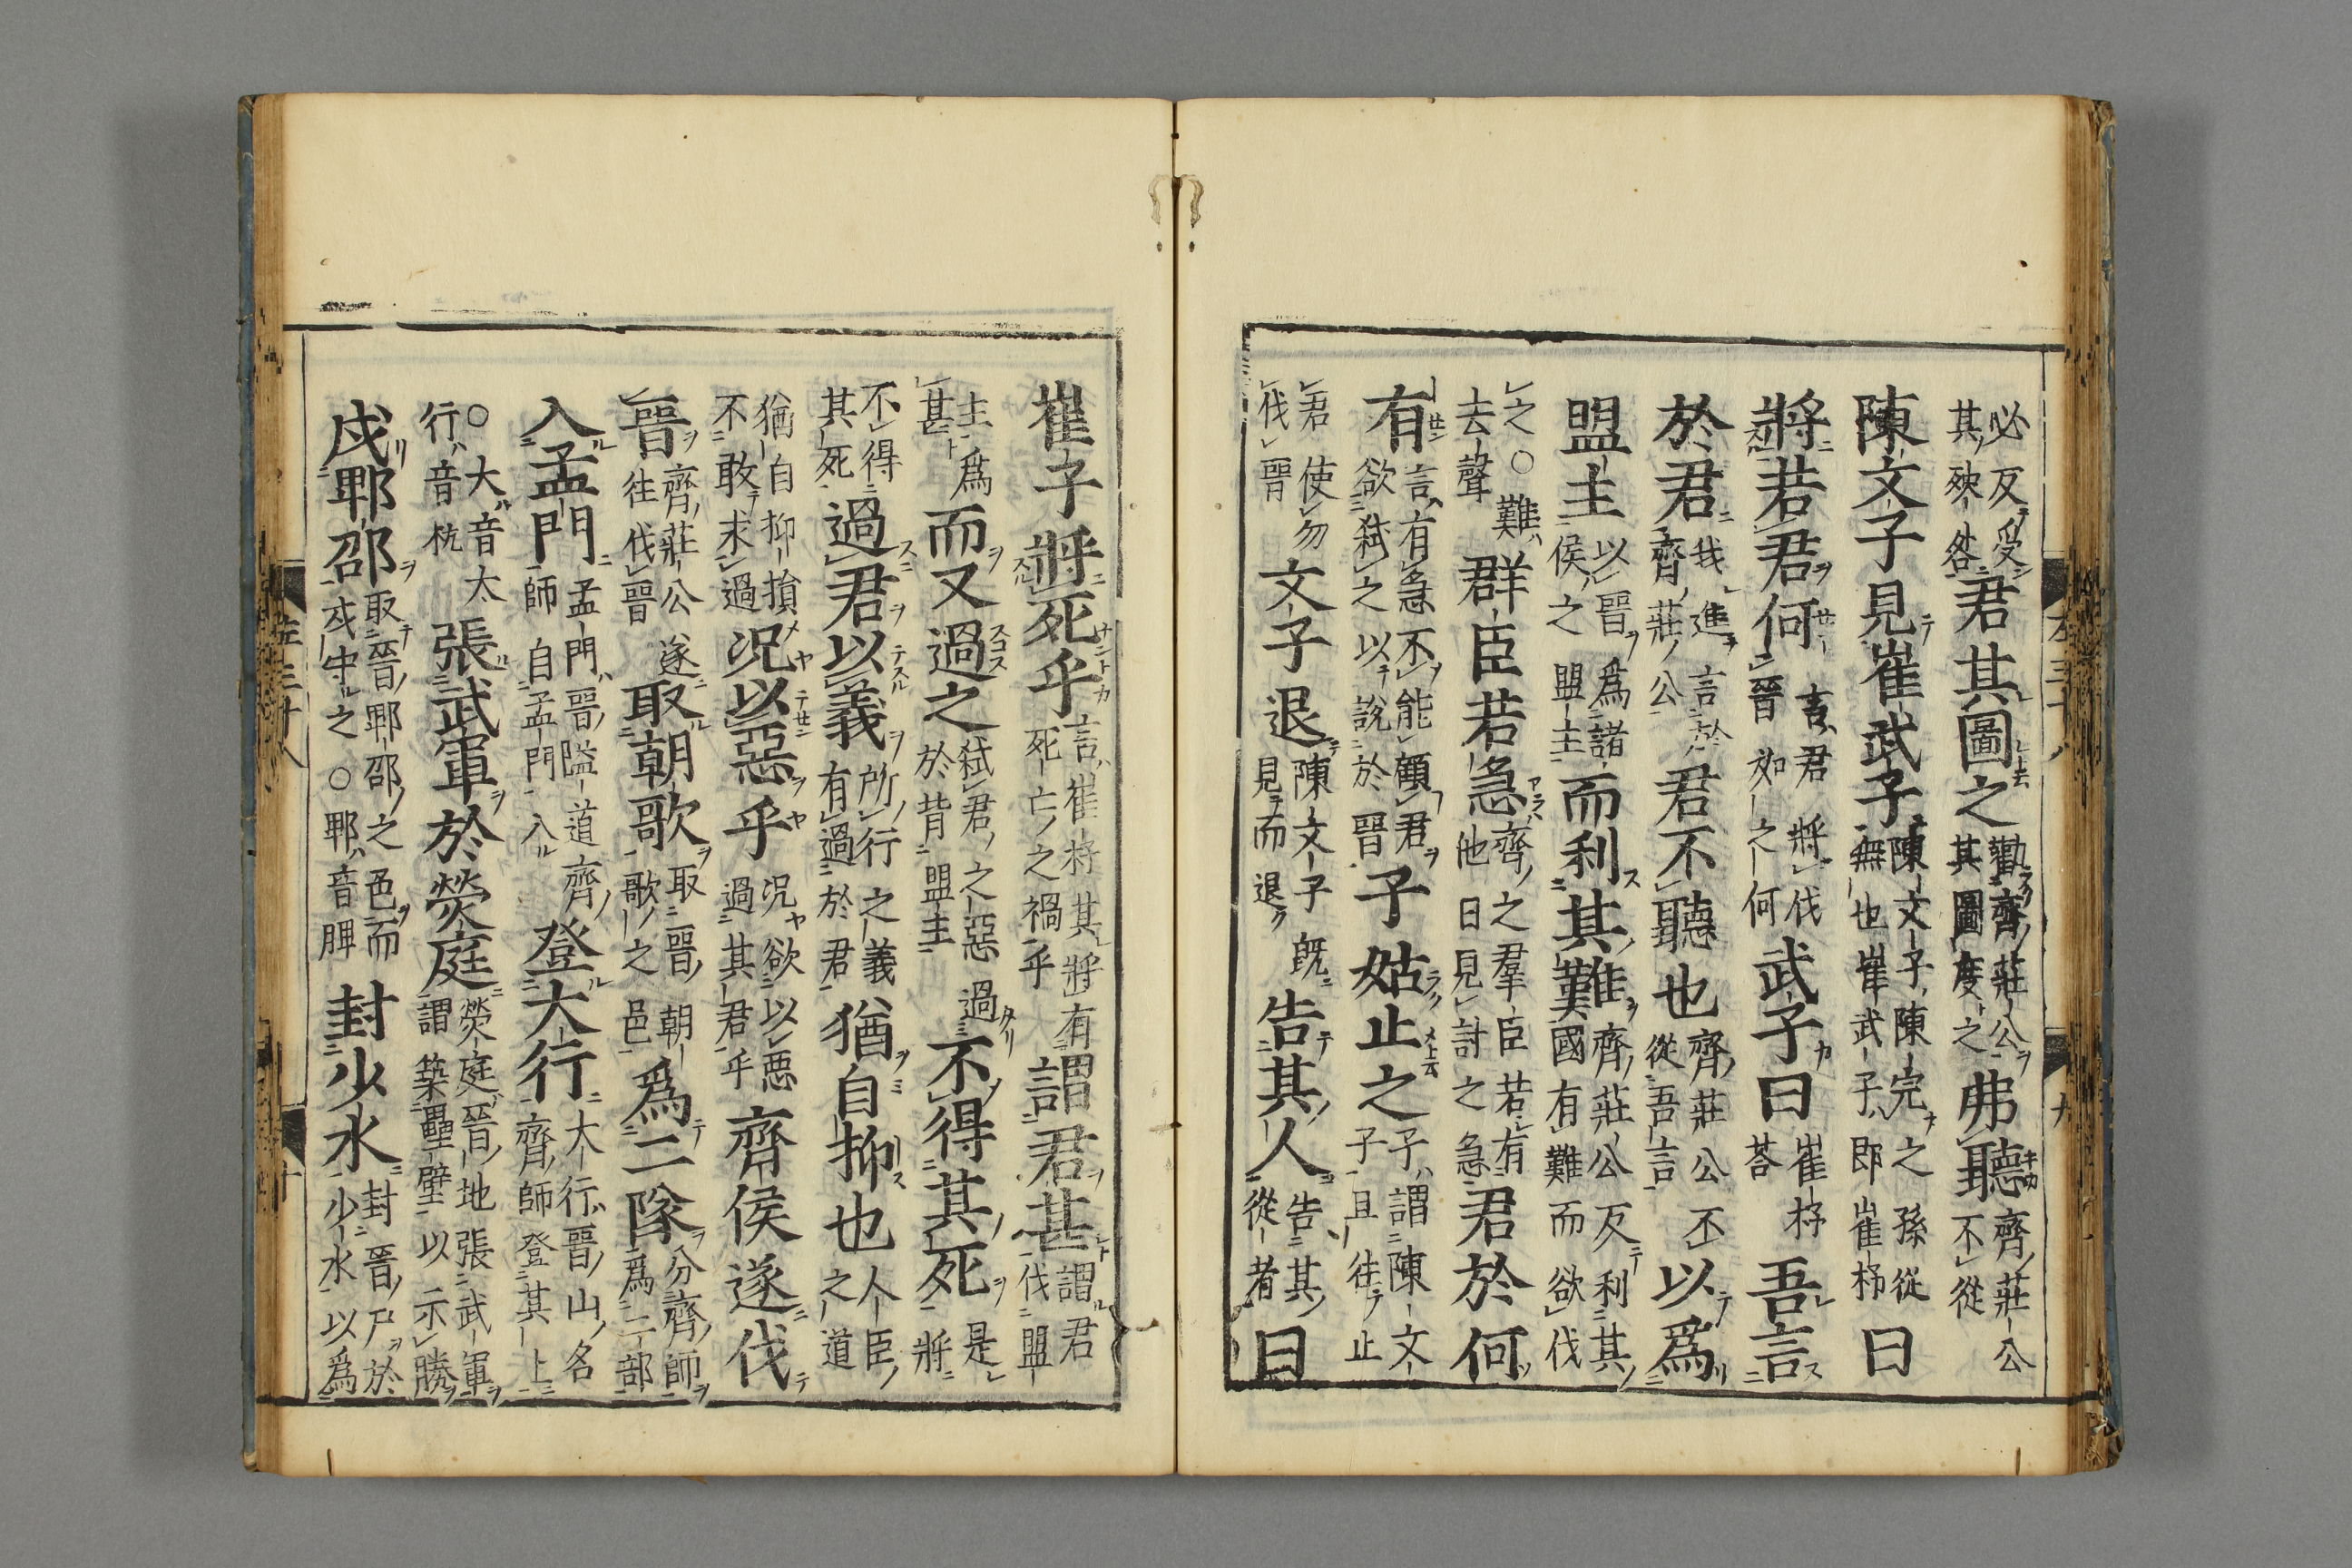 必反受其殃咎君其圖之勸齊莊公其圖度之弗聽齊莊公不從
陳文子見崔武子陳文子陳完之孫無也崔武子即崔杼曰
將若君何言君將伐晉如之何武子曰崔杼荅吾言
於君我進言於齊莊公君不聽也齊莊公不從吾言以爲
盟主以晉爲諸侯之盟主而利其難齊莊公反利其國有難而欲伐
之○難去聲群臣若急齊之羣臣若有他日見討之急君於何
有言有急不能顧君欲弑之以說於晉子姑止之子謂陳文子且往止
君使勿伐晉文子退陳文子見而退既告其人告其從者曰
崔子將死乎言崔杼其將有死亡之禍乎謂君甚謂君伐盟
主爲甚而又過之弑君之惡過於背盟主不得其死是將
不得其死過君以義所行之義有過於君猶自抑也人臣之道
猶自抑損不敢求過況以惡乎況欲以惡過其君乎齊侯遂伐
晉齊莊公往伐晉遂取朝歌取晉朝歌之邑爲二隊分齊師爲二部
入孟門孟門晉隘道齊師自孟門入登大行大行晉山名齊師登其上
○大音太行音杭張武軍於熒庭熒庭晉地張武軍謂築壘壁以示勝
戍郫邵取晉郫邵之邑而戍守之○郫音脾封少水封晉尸於少水以爲
左三十八
九
左三十八
十